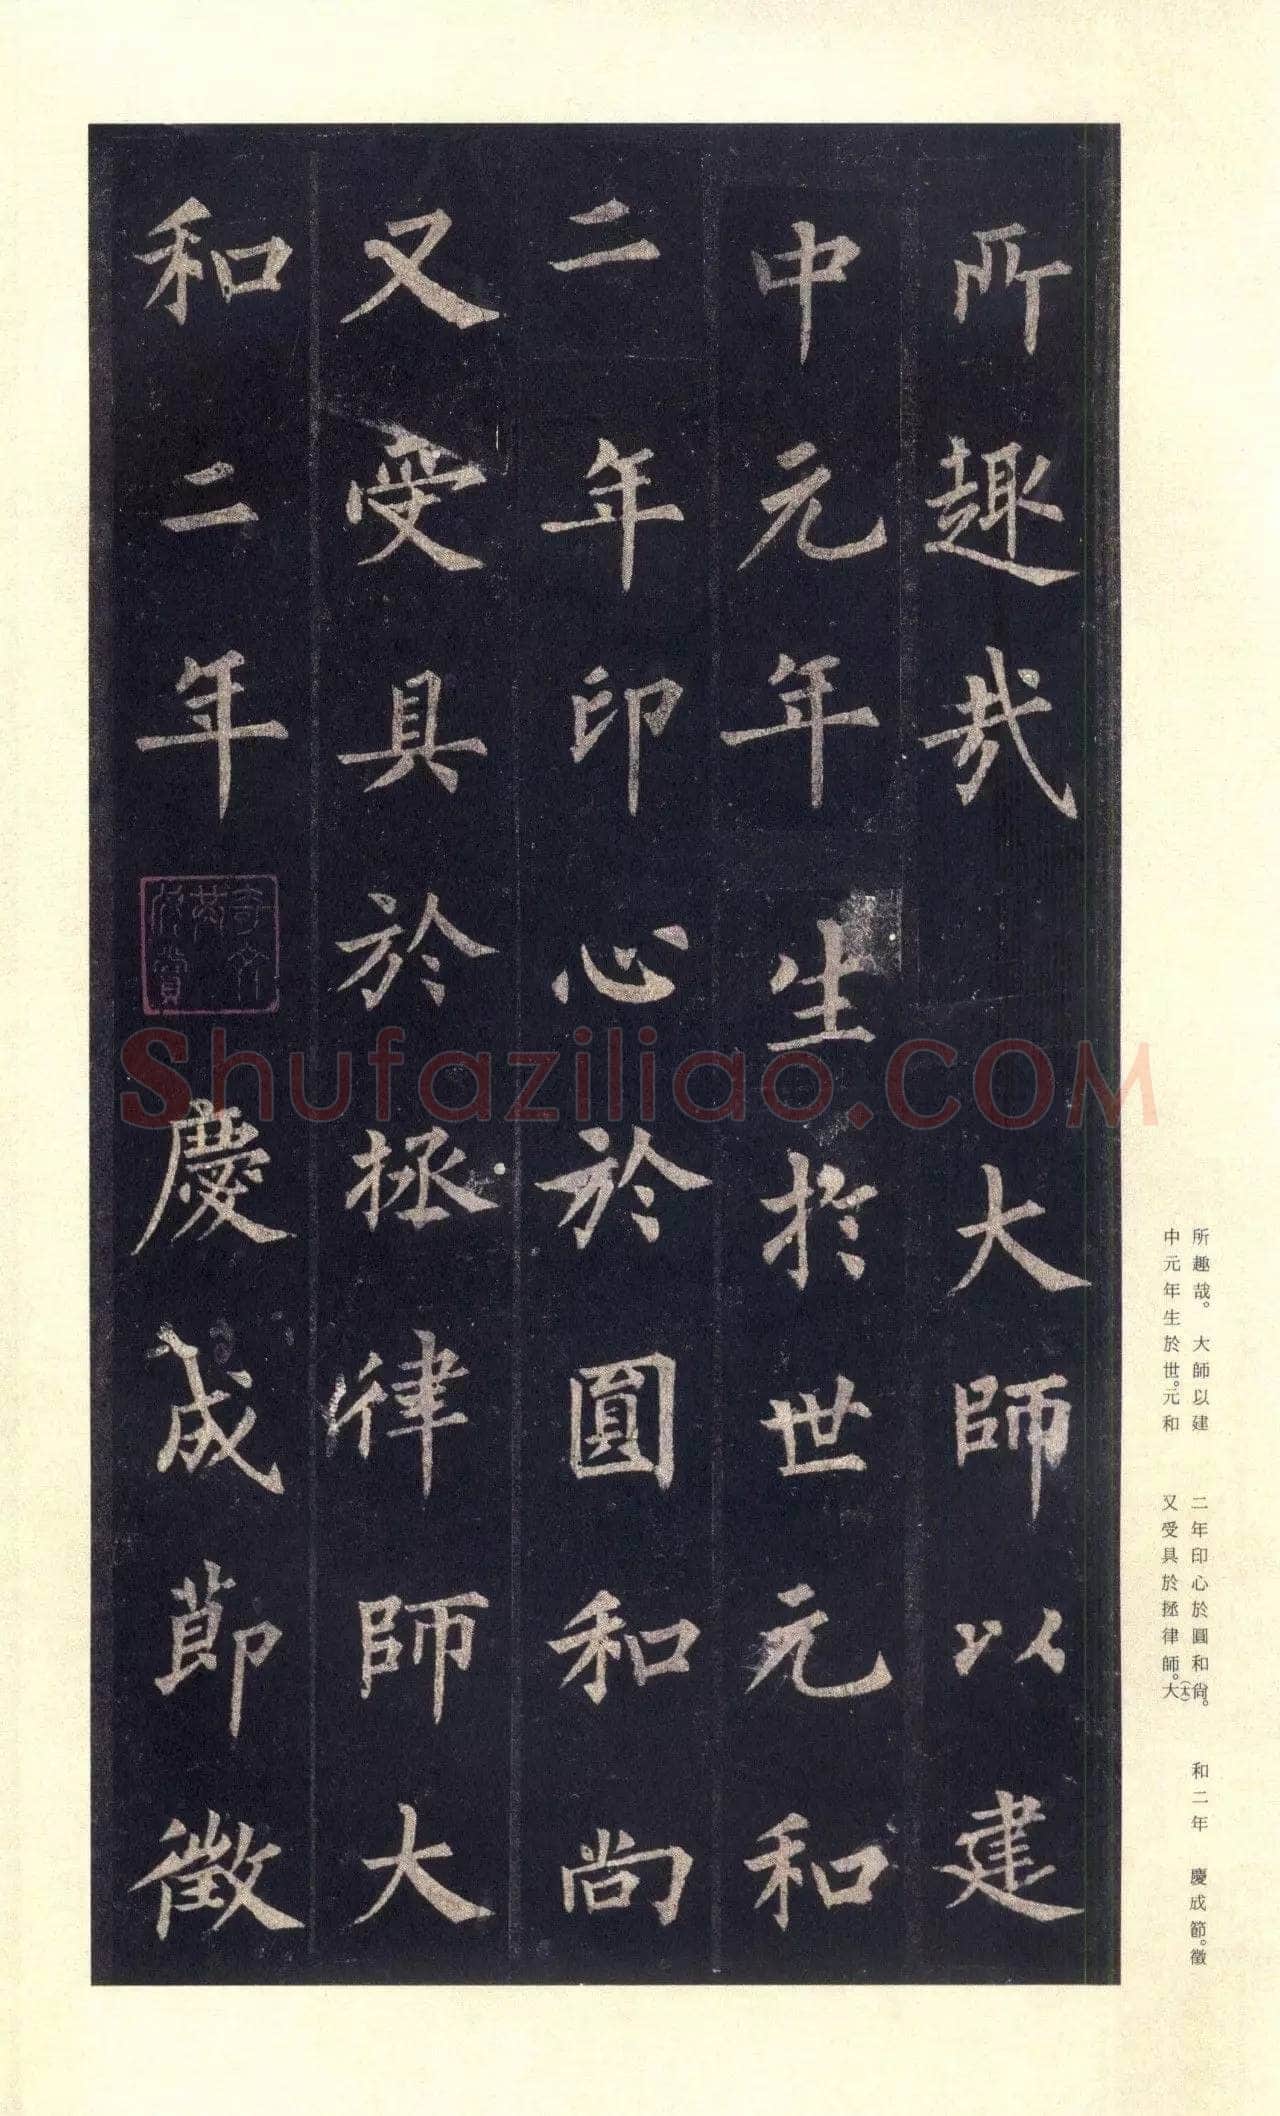 所趣哉大師以建
中元年生於世元和
二年印心於圓和尚
又受具於拯律師大
和二年慶成節徵
奇文共欣賞
Shufaziliao.COM
所趣哉。大師以建
中元年生於世。元和
二年印心於圓和尚。
又受具於拯律師。大(太)
和二年 慶成節。徵